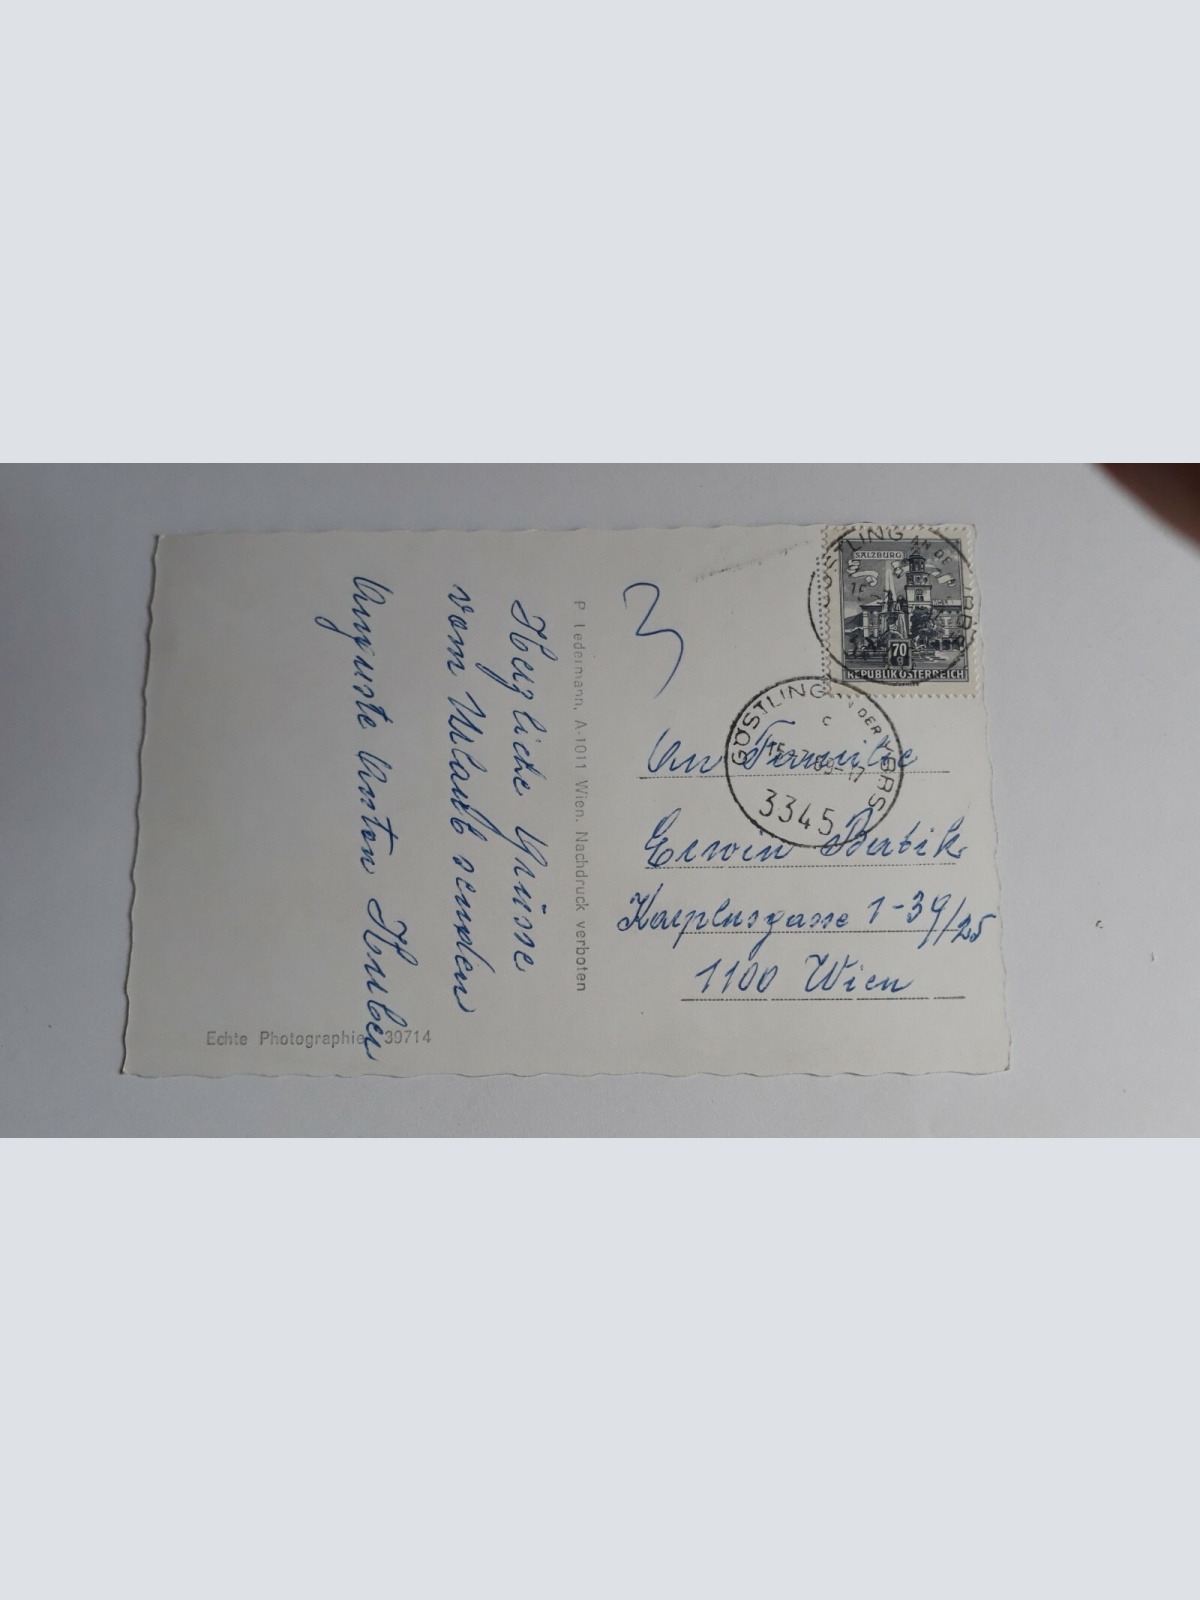 Herzliche Grüsse
vom Urlaub senden
Auguste Anton Huber
P. Ledermann, A-1011 Wien. Nachdruck verboten
Echte Photographie 39714
3
SALZBURG
70
g
REPUBLIK ÖSTERREICH
GÖSTLING AN DER YBBS
GÖSTLING AN DER YBBS
c
15.-7.69-17
3345
An Familie
Erwin
Karplusgasse 1-39/25
1100 Wien